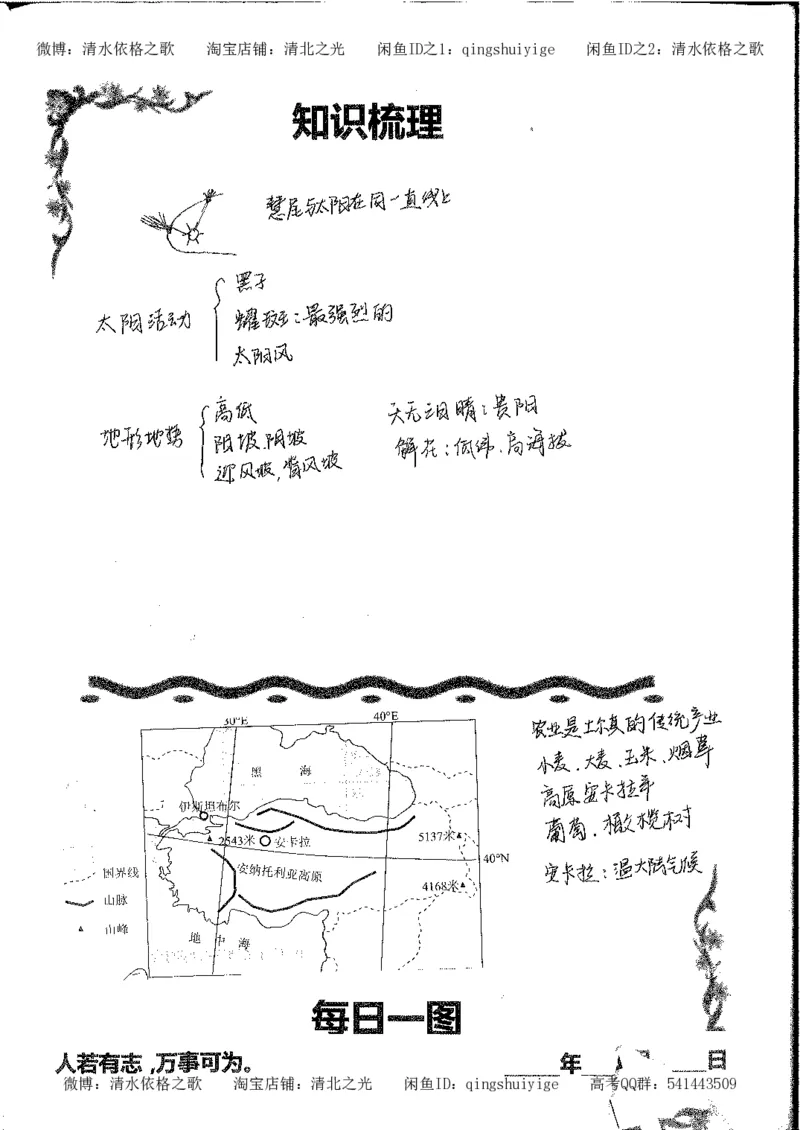 微博：清水依格之歌 淘宝店铺：清北之光 闲鱼ID之1：qingshuiyige 闲鱼ID之2：清水依格之歌
知识梳理
慧尾与太阳在同一直线上
太阳活动
黑子
耀斑：最强烈的
太阳风
地形地势
高低
阳坡.阴坡
迎风坡,背风坡
天无三日晴：贵阳
解在：低纬.高海拔
30°E
40°E
黑 海
伊斯坦布尔
2543米
安卡拉
5137米
40°N
安纳托利亚高原
4168米
国界线
山脉
山峰
地 中 海
农业是土尔其的传统产业
小麦.大麦.玉米.烟草
高原安卡拉羊
葡萄.橄榄树
安卡拉：温大陆气候
每日一图
人若有志,万事可为。
年 日
微博：清水依格之歌 淘宝店铺：清北之光 闲鱼ID：qingshuiyige 高考QQ群：541443509